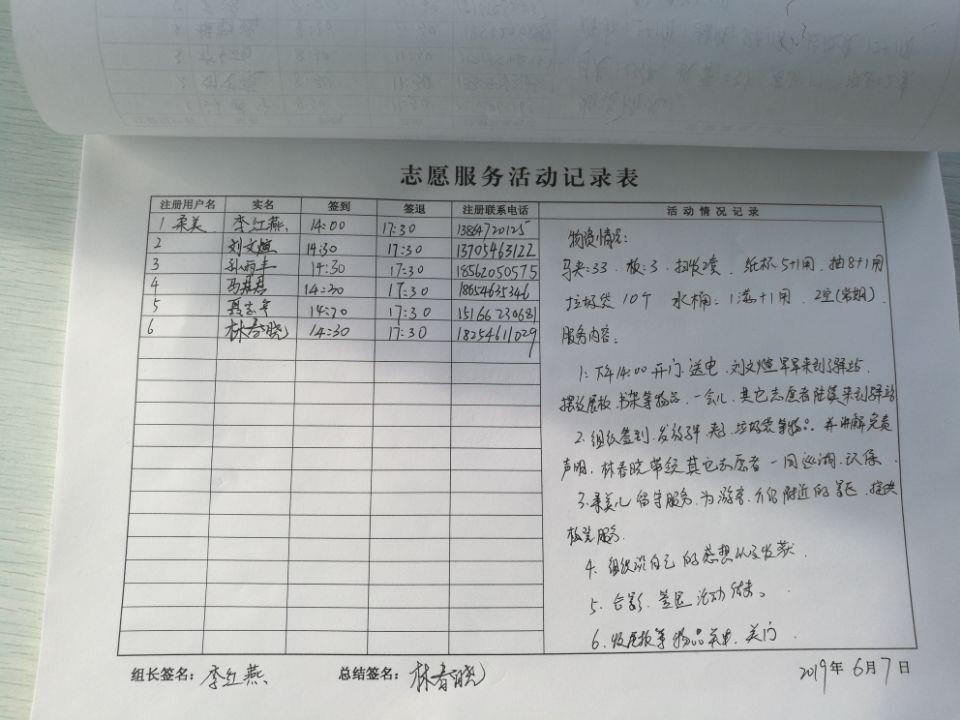 志愿服务活动记录表
注册用户名 实名 签到 签退 注册联系电话 活动情况记录
1 柔美 李红燕 14:00 17:30 13864720125
2 刘文煊 14:30 17:30 13705463122
3 孙雨丰 14:30 17:30 18562050575
4 14:30 17:30 18654635346
5 14:30 17:30 15166230681
6 林春晓 14:30 17:30 18254611029
物资情况:
马夹:33. 板:3. 扫收2套. 纸杯5+1用. 抽8+1用
垃圾袋10个 水桶:1满+1用. 2空(常明).
服务内容:
1: 下午14:00开门.送电.刘文煊早早来到驿站.
摆放展板.书架等物品.一会儿.其它志愿者陆续来到驿站
2. 组织签到.发放马夹.垃圾袋等物品.并讲解免责
声明.林春晓带领其它志愿者一同巡湖.环保.
3. 柔美儿留守服务.为游客介绍附近的景区.提供
服务.
4. 组织谈自己的感想以及收获.
5. 合影.签退.活动结束。
6. 收展板等物品.关电.关门.
组长签名: 李红燕 总结签名: 林春晓 2019年6月7日